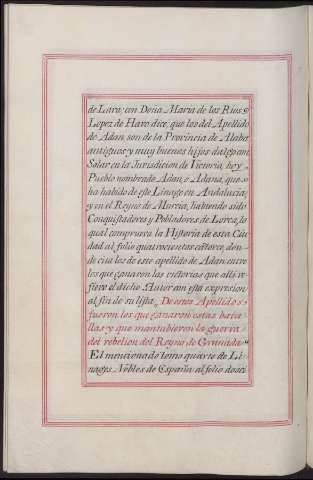 de Lara; con Doña Maria de los Rius.
Lopez de Haro dice, que los del Apellido
de Adan son de la Provincia de Alaba
antiguos y muy buenos hijos dalgo con
Solar en la Jurisdicion de Victoria, hoy
Pueblo nombrado Adan, o Adana, que
ha habido de este Linage en Andalucia,
y en el Reyno de Murcia, habiendo sido
Conquistadores y Pobladores de Lorca, lo
qual comprueva la Historia de esta Ciu
dad al folio quatrocientos catorce, don-
de cita los de este apellido de Adan entre
los que ganaron las victorias que alli re
fiere el dicho Autor con esta expresion
al fin de su lista. De estos Apellidos
fueron los que ganaron estas bata
llas y que mantubieron la guerra
del rebelion del Reyno de Granada.
El mencionado tomo quarto de Li-
nages Nobles de España al folio dosci